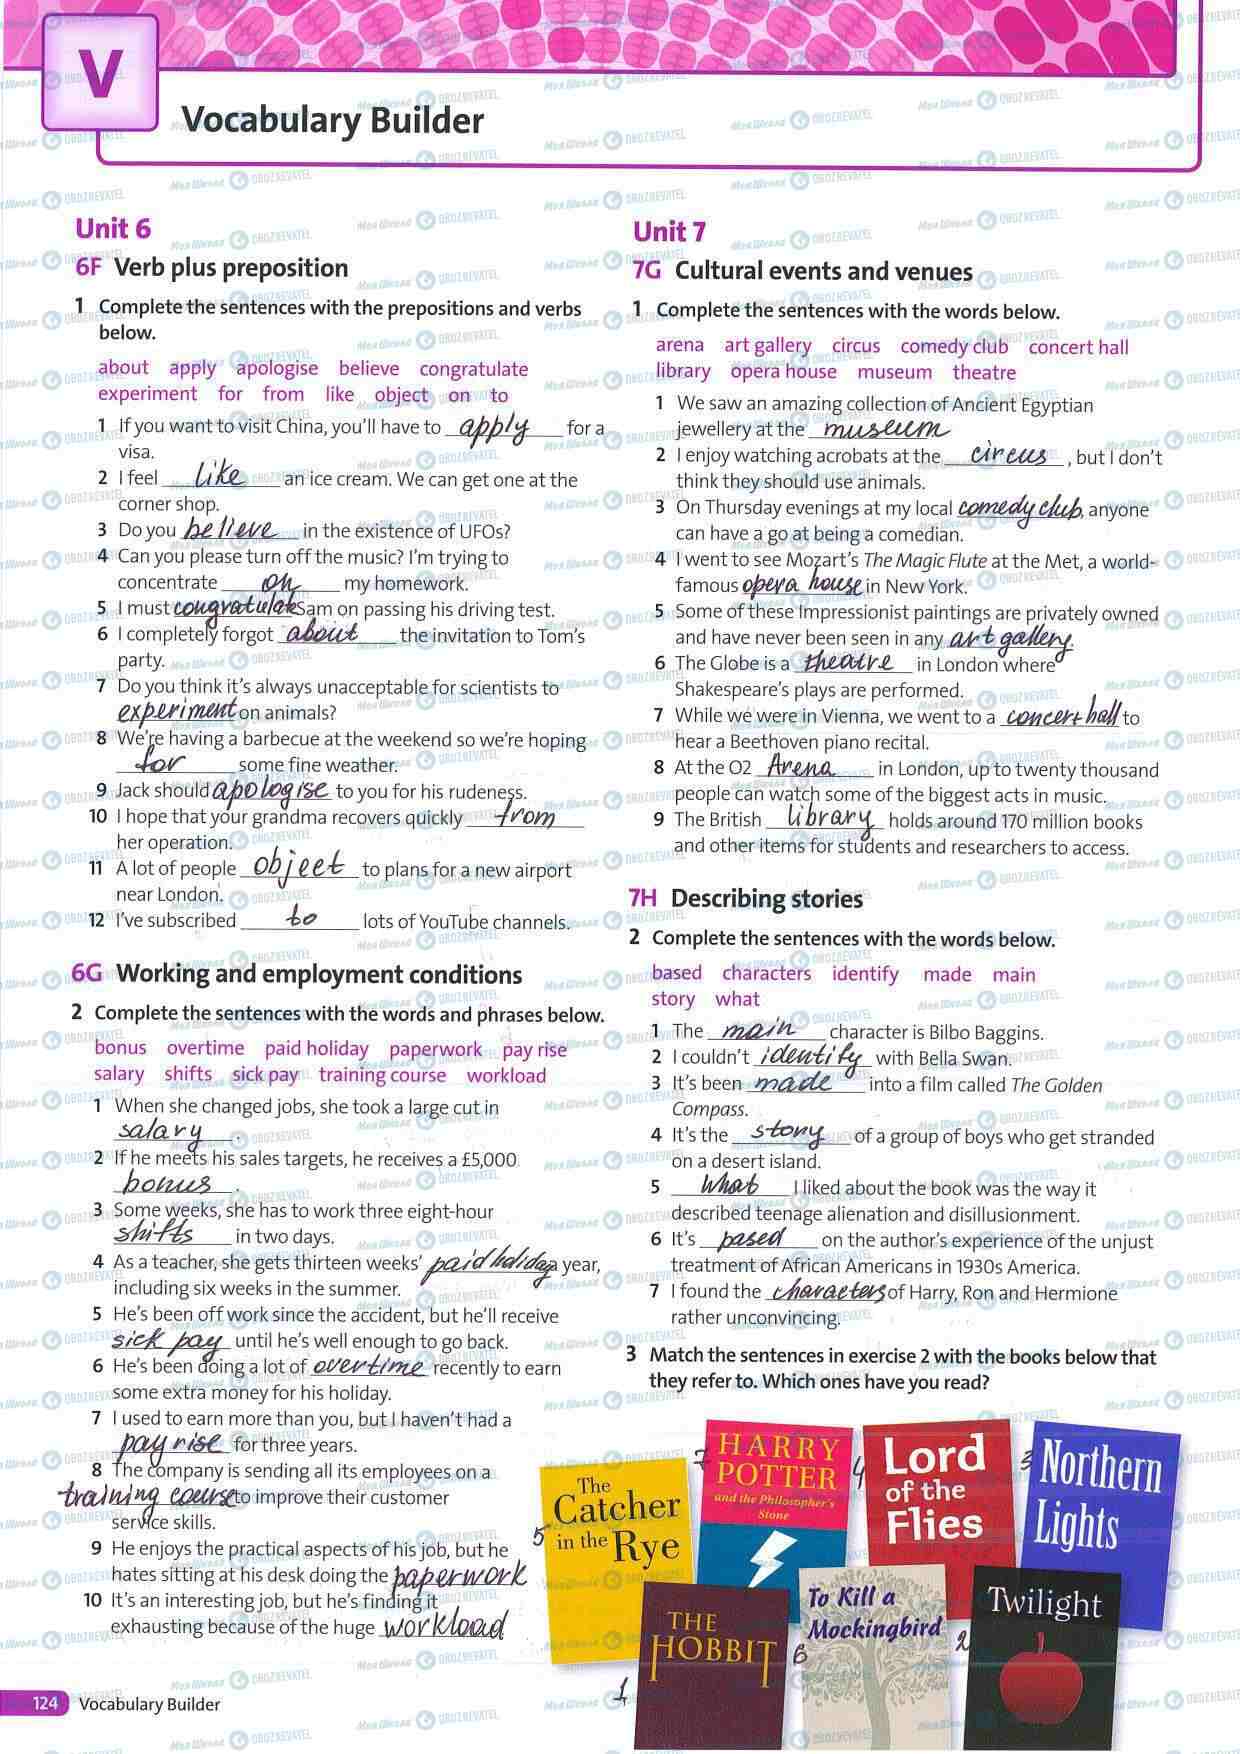 V
Vocabulary Builder
Unit 6
6F Verb plus preposition
1 Complete the sentences with the prepositions and verbs
below.
about apply apologise believe congratulate
experiment for from like object on to
1 If you want to visit China, you'll have to apply for a
visa.
2 I feel like an ice cream. We can get one at the
corner shop.
3 Do you believe in the existence of UFOs?
4 Can you please turn off the music? I'm trying to
concentrate on my homework.
5 I must congratulate Sam on passing his driving test.
6 I completely forgot about the invitation to Tom's
party.
7 Do you think it's always unacceptable for scientists to
experiment on animals?
8 We're having a barbecue at the weekend so we're hoping
for some fine weather.
9 Jack should apologise to you for his rudeness.
10 I hope that your grandma recovers quickly from
her operation.
11 A lot of people object to plans for a new airport
near London.
12 I've subscribed to lots of YouTube channels.
6G Working and employment conditions
2 Complete the sentences with the words and phrases below.
bonus overtime paid holiday paperwork pay rise
salary shifts sick pay training course workload
1 When she changed jobs, she took a large cut in
salary.
2 If he meets his sales targets, he receives a £5,000
bonus.
3 Some weeks, she has to work three eight-hour
shifts in two days.
4 As a teacher, she gets thirteen weeks' paid holiday a year,
including six weeks in the summer.
5 He's been off work since the accident, but he'll receive
sick pay until he's well enough to go back.
6 He's been doing a lot of overtime recently to earn
some extra money for his holiday.
7 I used to earn more than you, but I haven't had a
pay rise for three years.
8 The company is sending all its employees on a
training course to improve their customer
service skills.
9 He enjoys the practical aspects of his job, but he
hates sitting at his desk doing the paperwork
10 It's an interesting job, but he's finding it
exhausting because of the huge workload
124 Vocabulary Builder
Unit 7
7G Cultural events and venues
1 Complete the sentences with the words below.
arena art gallery circus comedy club concert hall
library opera house museum theatre
1 We saw an amazing collection of Ancient Egyptian
jewellery at the museum
2 I enjoy watching acrobats at the circus, but I don't
think they should use animals.
3 On Thursday evenings at my local comedy club, anyone
can have a go at being a comedian.
4 I went to see Mozart's The Magic Flute at the Met, a world-
famous opera house in New York.
5 Some of these Impressionist paintings are privately owned
and have never been seen in any art gallery.
6 The Globe is a theatre in London where
Shakespeare's plays are performed.
7 While we were in Vienna, we went to a concert hall to
hear a Beethoven piano recital.
8 At the O2 Arena in London, up to twenty thousand
people can watch some of the biggest acts in music.
9 The British library holds around 170 million books
and other items for students and researchers to access.
7H Describing stories
2 Complete the sentences with the words below.
based characters identify made main
story what
1 The main character is Bilbo Baggins.
2 I couldn't identify with Bella Swan.
3 It's been made into a film called The Golden
Compass.
4 It's the story of a group of boys who get stranded
on a desert island.
5 What I liked about the book was the way it
described teenage alienation and disillusionment.
6 It's based on the author's experience of the unjust
treatment of African Americans in 1930s America.
7 I found the characters of Harry, Ron and Hermione
rather unconvincing.
3 Match the sentences in exercise 2 with the books below that
they refer to. Which ones have you read?
5 The
Catcher
in the Rye
7 HARRY
POTTER
and the Philosopher's
Stone
4 Lord
of the
Flies
3 Northern
Lights
1 THE
HOBBIT
6 To Kill a
Mockingbird
2 Twilight
Моя Школа OBOZREVATEL